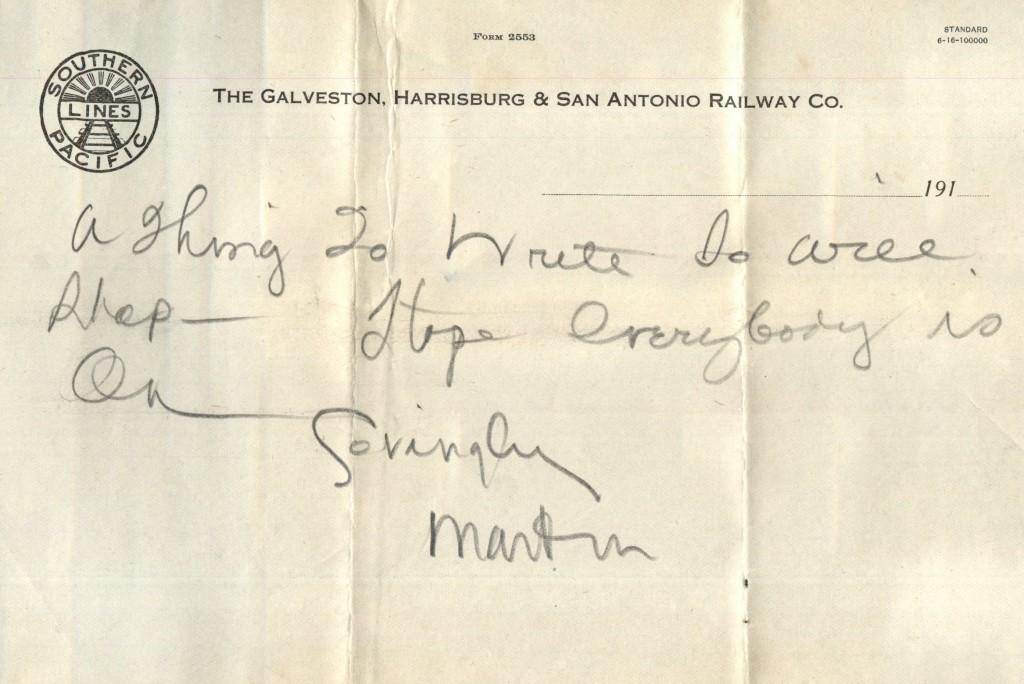 FORM 2553
STANDARD
6-16-100000
SOUTHERN
LINES
PACIFIC
THE GALVESTON, HARRISBURG & SAN ANTONIO RAILWAY CO.
191
a Thing To Write So will
Hope everybody is
Lovingly
Martin